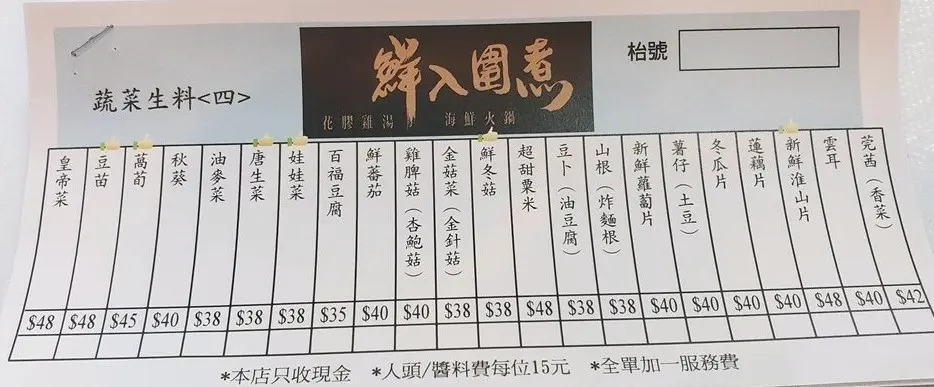 蔬菜生料<四>
鮮入圍煮
花膠雞湯 海鮮火鍋
枱號
皇帝菜 $48
豆苗 $48
萵荀 $45
秋葵 $40
油麥菜 $38
唐生菜 $38
娃娃菜 $38
百福豆腐 $35
鮮蕃茄 $40
雞脾菇（杏鮑菇） $40
金菇菜（金針菇） $38
鮮冬菇 $38
超甜粟米 $48
豆卜（油豆腐） $38
山根（炸麵根） $38
新鮮蘿蔔片 $40
薯仔（土豆） $40
冬瓜片 $40
蓮藕片 $40
新鮮淮山片 $48
雲耳 $40
莞茜（香菜） $42
*本店只收現金 *人頭/醬料費每位15元 *全單加一服務費